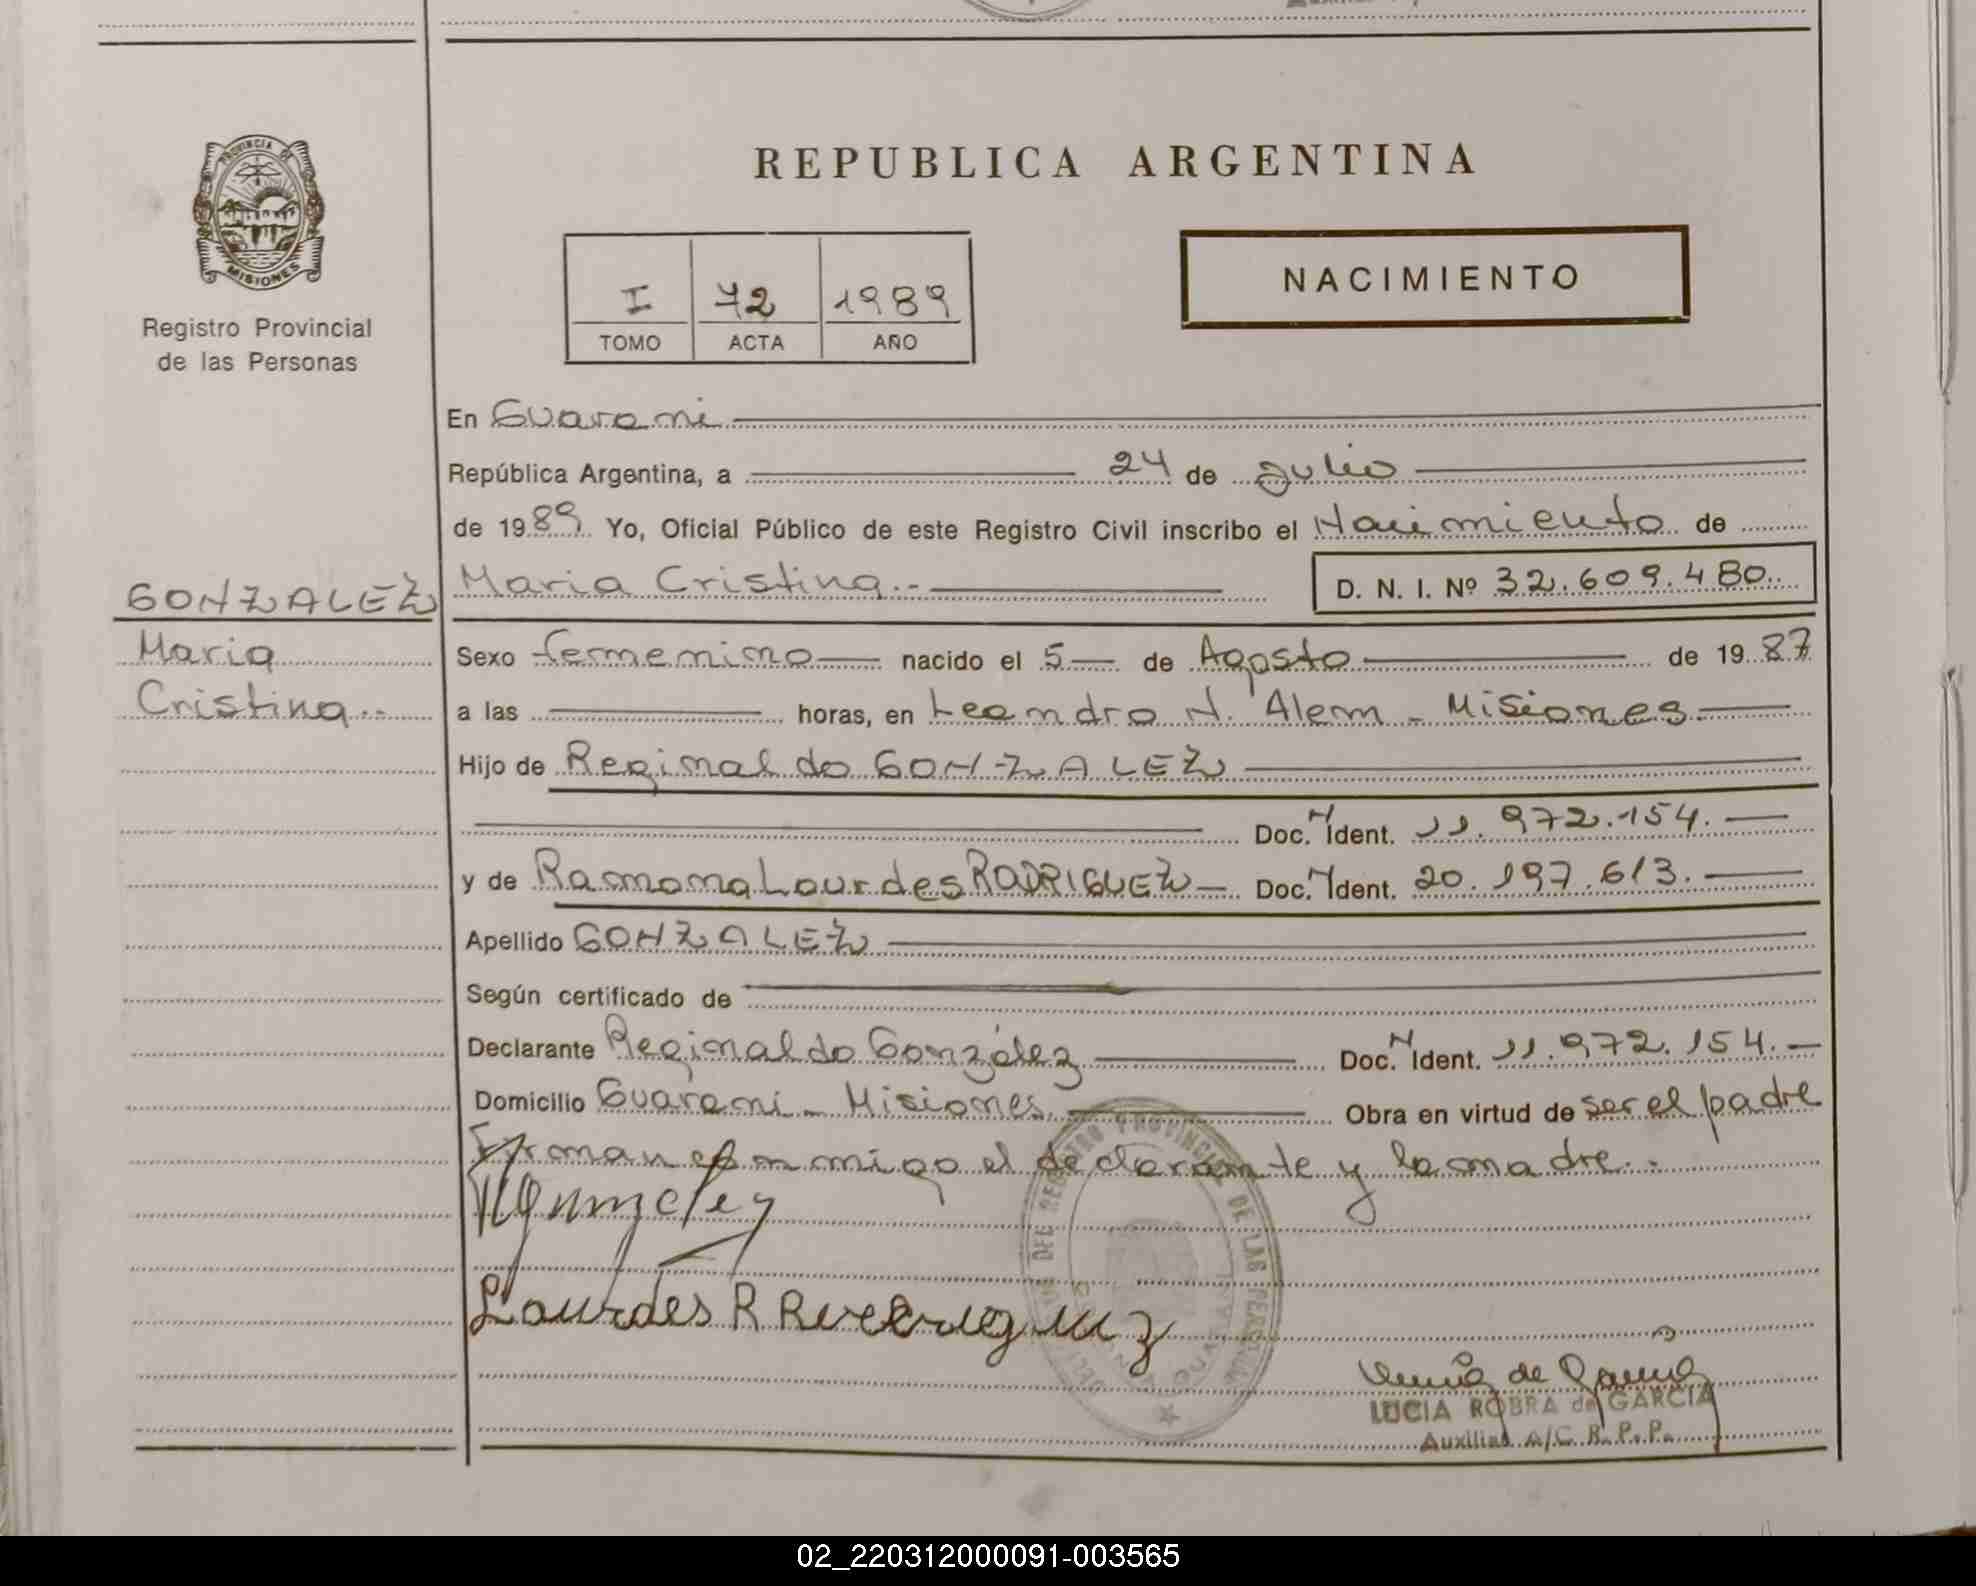 REPUBLICA ARGENTINA
PROVINCIA DE
MISIONES
Registro Provincial
de las Personas
I 72 1989
TOMO ACTA AÑO
NACIMIENTO
En Guarani
República Argentina, a 24 de Julio
de 1989 Yo, Oficial Público de este Registro Civil inscribo el Nacimiento de
GONZALEZ
Maria
Cristina..
Maria Cristina.-
D. N. I. Nº 32.609.480..
Sexo femenino nacido el 5 de Agosto de 1987
a las horas, en Leandro N. Alem - Misiones
Hijo de Reginaldo GONZALEZ
Doc. N Ident. 11.972.154.
y de Ramona Lourdes RODRIGUEZ Doc. N Ident. 20.197.613.
Apellido GONZALEZ
Según certificado de
Declarante Reginaldo González Doc. N Ident. 11.972.154.
Domicilio Guarani - Misiones Obra en virtud de ser el padre
Firman conmigo el declarante y la madre..
Lourdes R
DEL REGISTRO PROVINCIAL DE LAS PERSONAS
LUCIA ROBRA de GARCIA
Auxiliar A/C R. P. P.
02_220312000091-003565